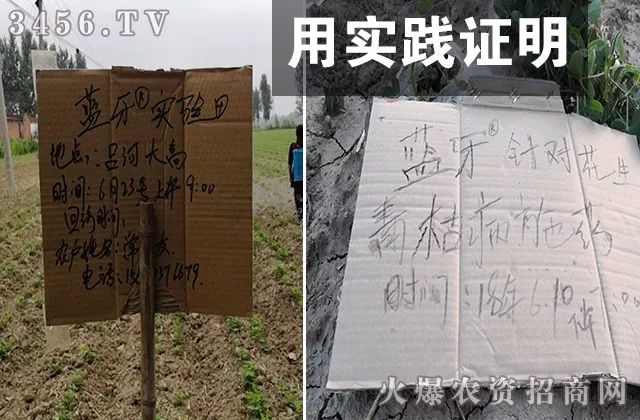 3456.TV
用实践证明
蓝牙®实验田
地点:吕河大高
时间:6月23号上午9:00
回访时间:
农户姓名:常 友
电话:15 376679.
蓝牙®针对花生
青枯病施药
时间:18年6.10
火爆农资招商网